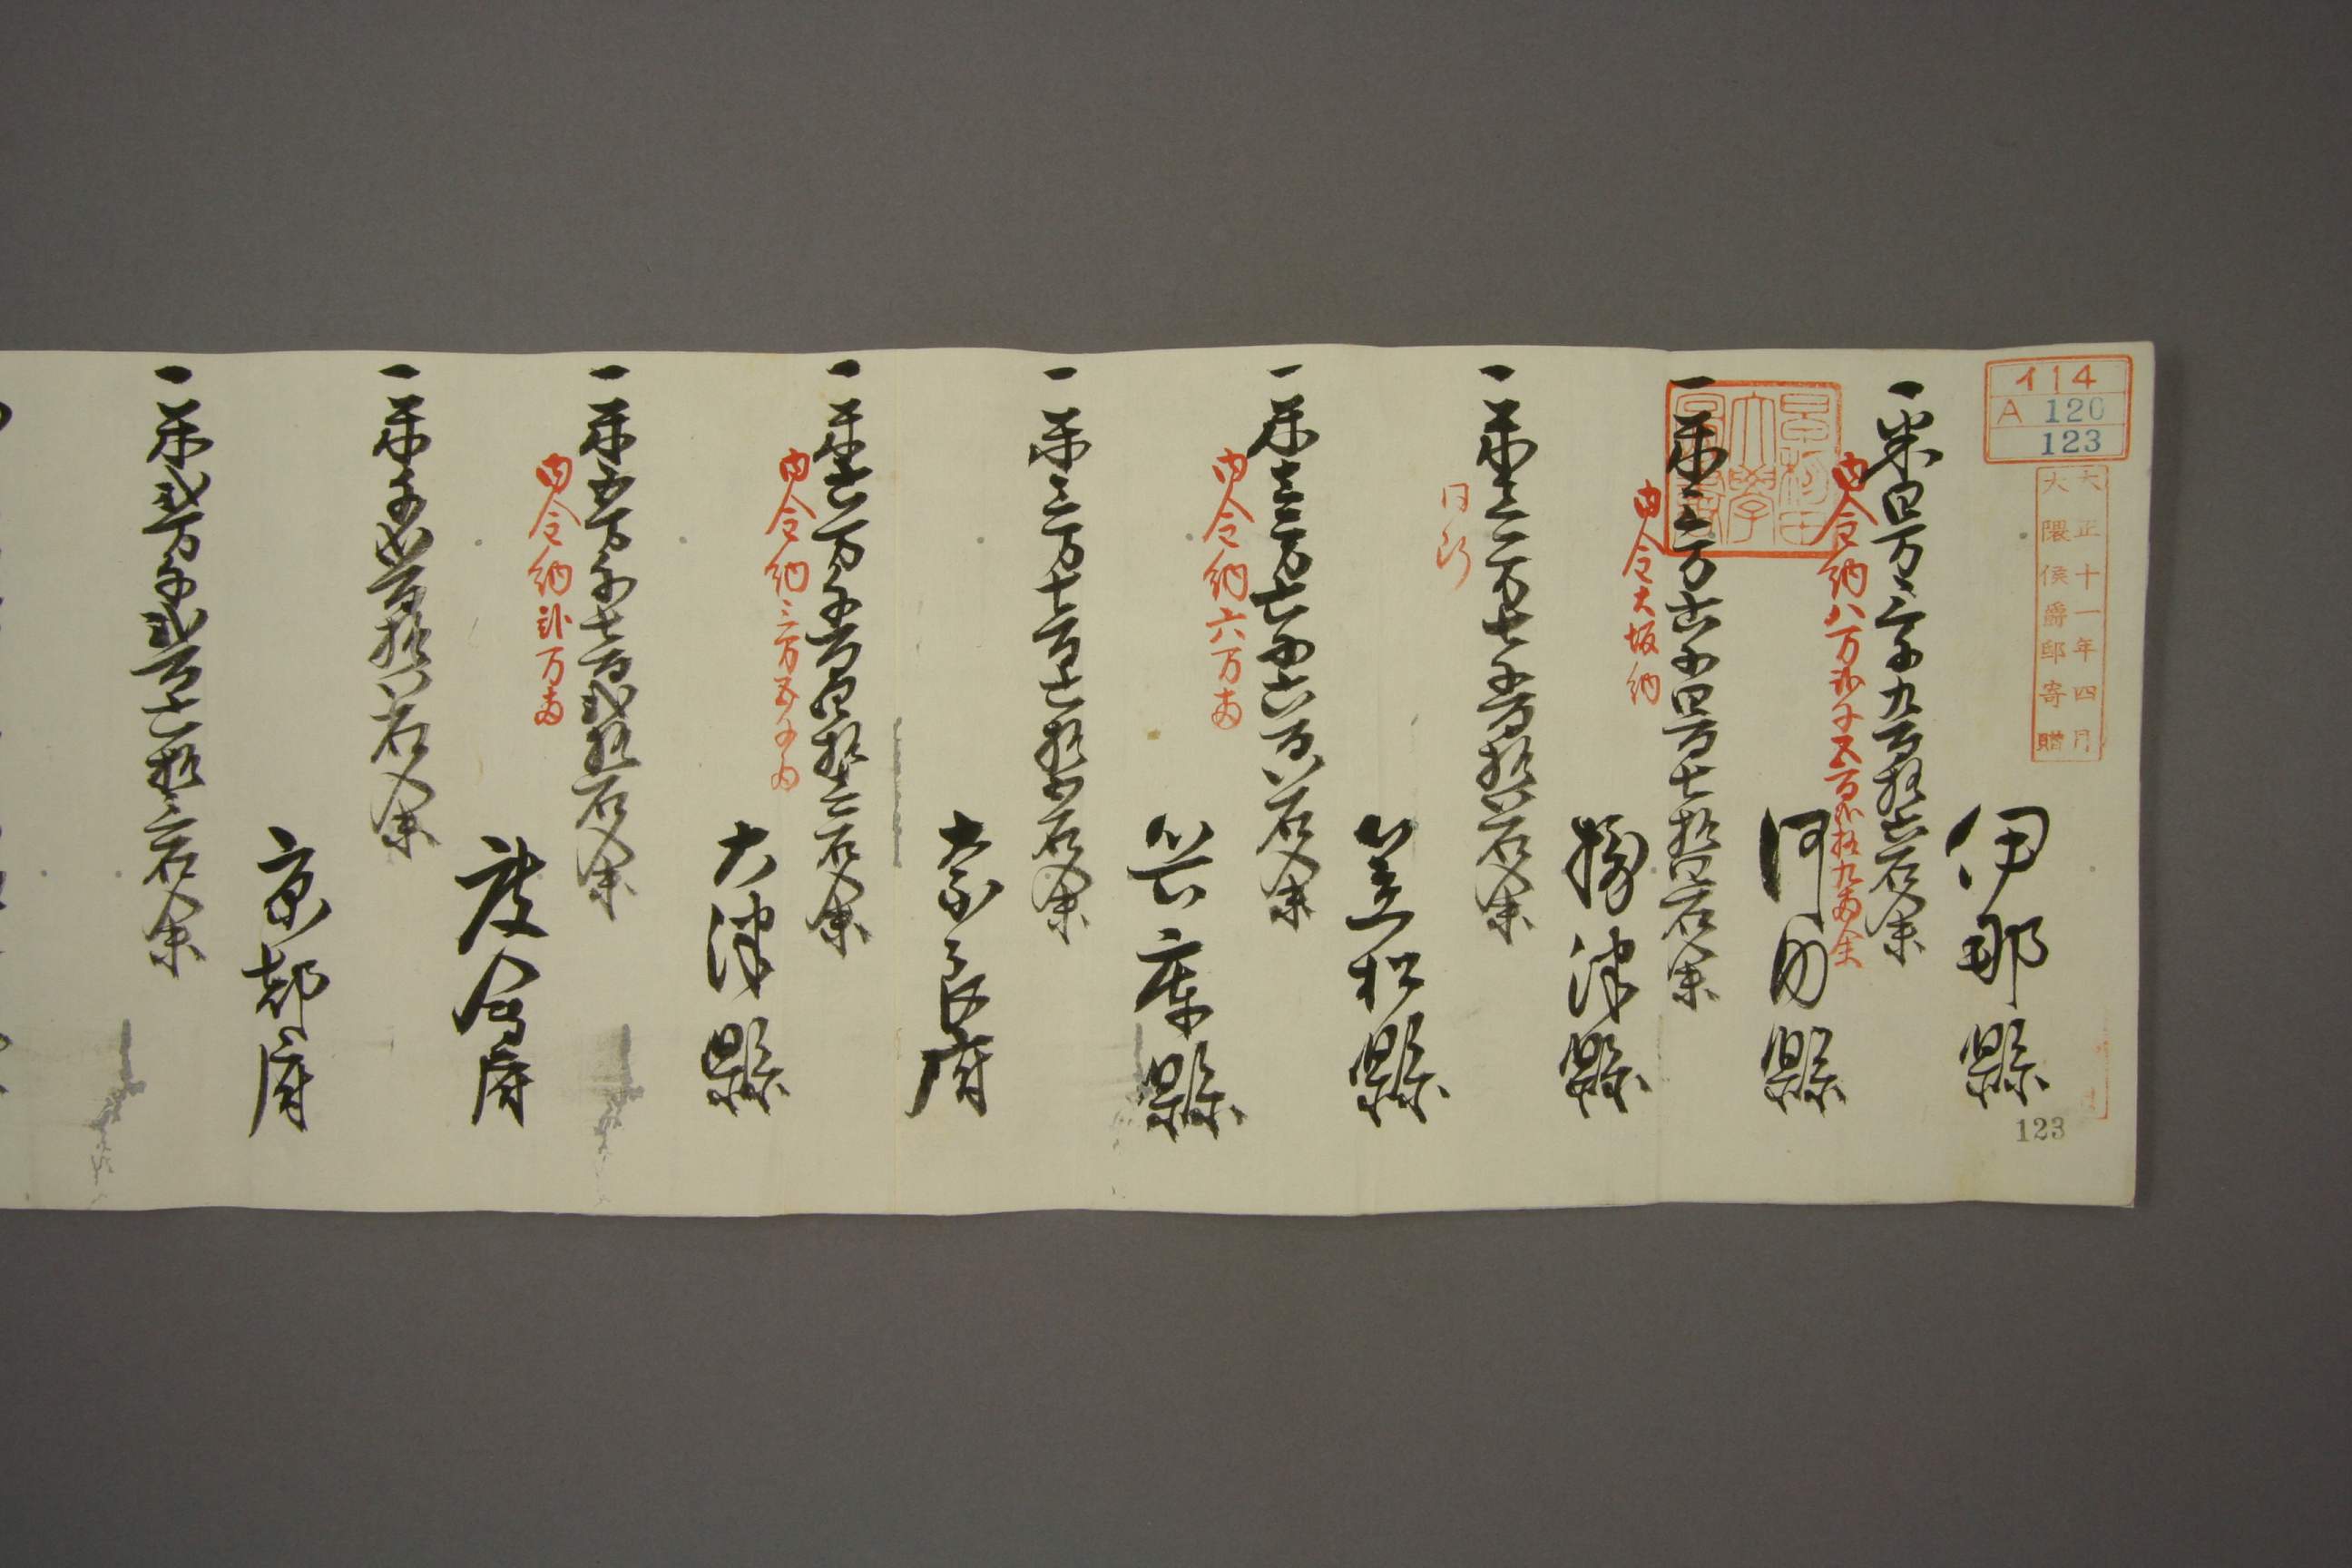 イ14
A 120
123
大正十一年四月
大隈侯爵邸寄贈
伊那縣
123
一米四万三千九百拾六石余
内金納八万弐千五百弐拾九両余
河内縣
一米三万六千四百七拾四石余
内金大坂納
摂津縣
一米三万七千百拾八石余
同断
笠松縣
一米三万七千六百八石余
内金納六万両
兵庫縣
一米三万七百七拾石余
奈良府
一米六万千百四拾六石余
内金納三万五千両
大津縣
一米五万千七百弐拾石余
内金納弐万両
度會府
一米千百拾八石余
京都府
一米弐万千弐百七拾三石余